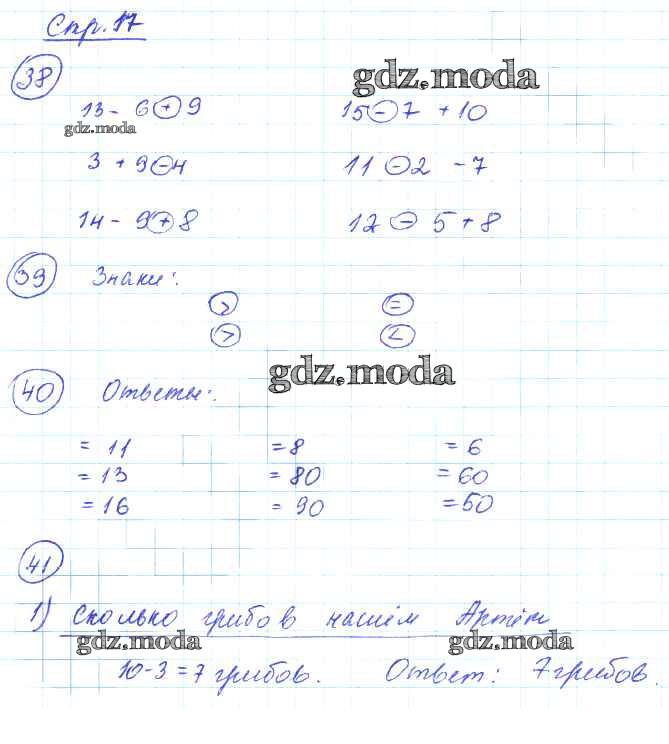 Стр. 17
38
gdz.moda
13 - 6 + 9
15 - 7 + 10
gdz.moda
3 + 9 - 4
11 - 2 - 7
14 - 9 + 8
12 - 5 + 8
39 Знаки:
> =
> <
gdz.moda
40 Ответы:
= 11 = 8 = 6
= 13 = 80 = 60
= 16 = 90 = 50
41
1) Сколько грибов нашём Артём
gdz.moda gdz.moda
10-3=7 грибов. Ответ: 7 грибов.